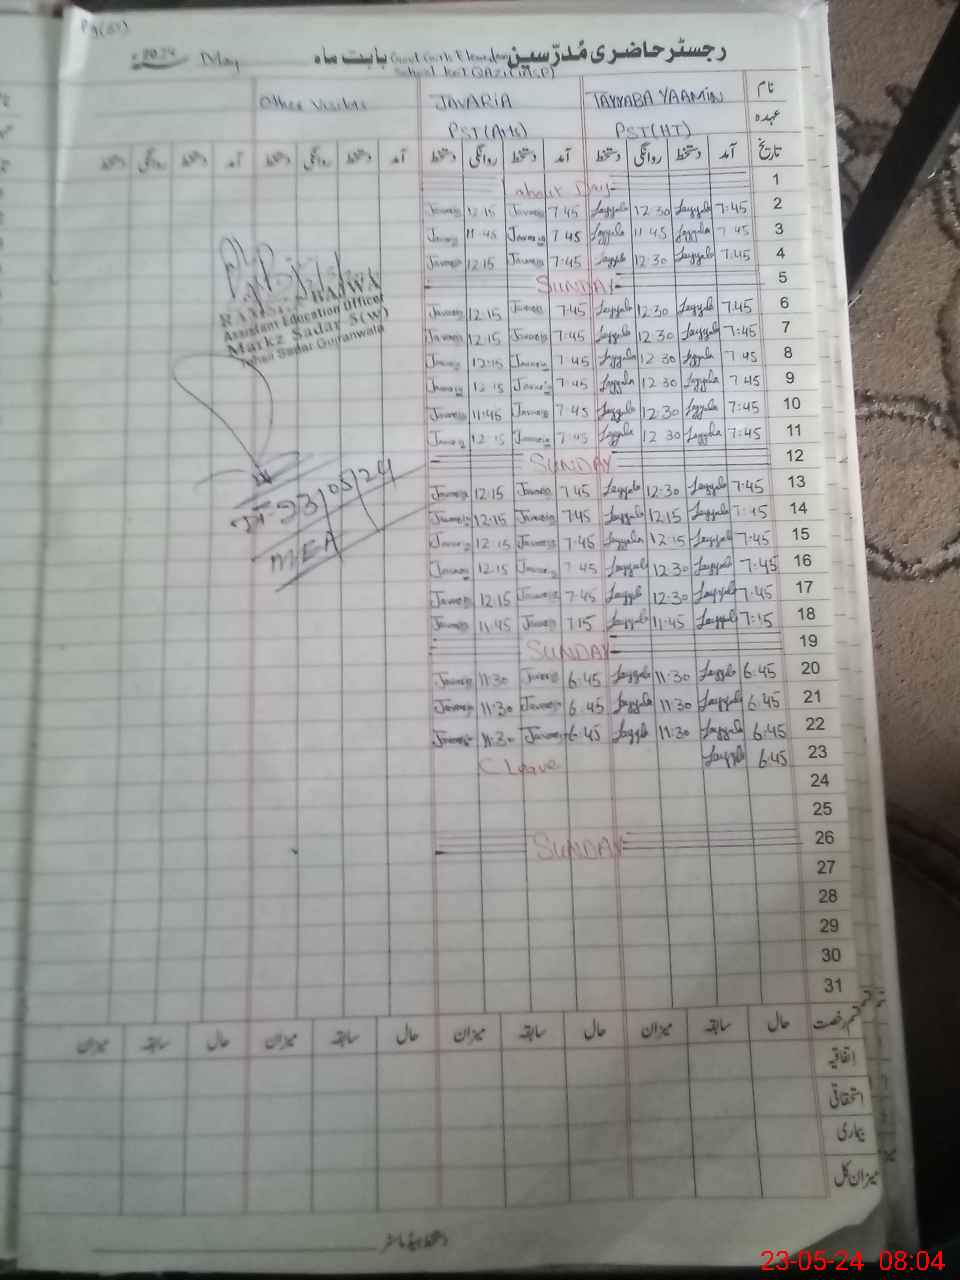 رجسٹر حاضری مُدرّسین بابت ماہ May 2024
نام TAYYABA YAAMIN JAVARIA Other Visitors
عہدہ PST(HT) PST(AHs)
تاریخ آمد دستخط روانگی دستخط آمد دستخط روانگی دستخط آمد دستخط روانگی دستخط آمد دستخط روانگی دستخط
1
2 7:45 Tayyaba 12:30 Tayyaba 7:45 Javaria 12:15 Javaria
3 7:45 Tayyaba 11:45 Tayyaba 7:45 Javaria 11:45 Javaria
4 7:45 Tayyaba 12:30 Tayyaba 7:45 Javaria 12:15 Javaria
5 SUNDAY
6 7:45 Tayyaba 12:30 Tayyaba 7:45 Javaria 12:15 Javaria
7 7:45 Tayyaba 12:30 Tayyaba 7:45 Javaria 12:15 Javaria
8 7:45 Tayyaba 12:30 Tayyaba 7:45 Javaria 12:15 Javaria
9 7:45 Tayyaba 12:30 Tayyaba 7:45 Javaria 12:15 Javaria
10 7:45 Tayyaba 12:30 Tayyaba 7:45 Javaria 11:45 Javaria
11 7:45 Tayyaba 12:30 Tayyaba 7:45 Javaria 12:15 Javaria
12 SUNDAY
13 7:45 Tayyaba 12:30 Tayyaba 7:45 Javaria 12:15 Javaria
14 Tayyaba 12:15 Tayyaba 7:45 Javaria 12:15 Javaria
15 7:45 Tayyaba 12:15 Tayyaba 7:45 Javaria 12:15 Javaria
16 7:45 Tayyaba 12:30 Tayyaba 7:45 Javaria 12:15 Javaria
17 7:45 Tayyaba 12:30 Tayyaba 7:45 Javaria 12:15 Javaria
18 Tayyaba 11:45 Tayyaba Javaria 11:45 Javaria
19 SUNDAY
20 6:45 Tayyaba 11:30 Tayyaba 6:45 Javaria 11:30 Javaria
21 6:45 Tayyaba 11:30 Tayyaba 6:45 Javaria 11:30 Javaria
22 6:45 Tayyaba 11:30 Tayyaba 6:45 Javaria 11:30 Javaria
23 6:45 Tayyaba C Leave
24
25
26 SUNDAY
27
28
29
30
31
Assistant Education Officer
Markz Sadar 5(w)
Tehsil Sadar Gujranwala
23/05/24
MEA
قسم رخصت حال سابقہ میزان حال سابقہ میزان حال سابقہ میزان حال سابقہ میزان
اتفاقیہ
استحقاقی
بیماری
میزان کل
دستخط ہیڈ ماسٹر
23-05-24 08:04